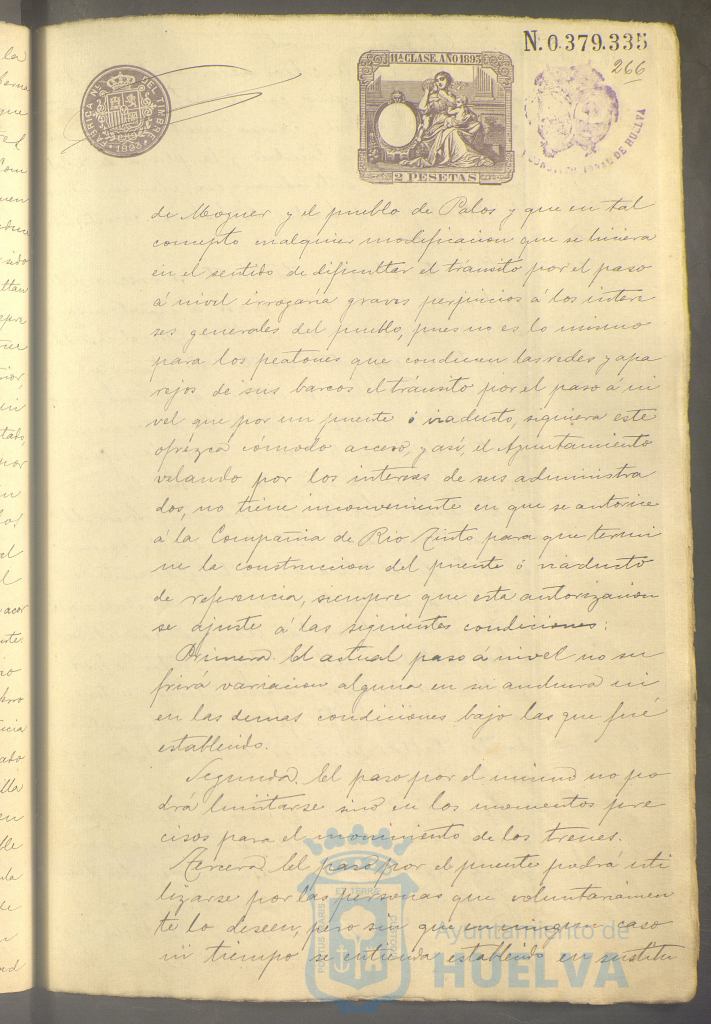 N. 0.379.335
266
11ª CLASE. AÑO 1893
2 PESETAS
FÁBRICA NAL. DEL TIMBRE
1893
CONSTITUCIONAL DE HUELVA
de Moguer y el pueblo de Palos y que en tal
concepto cualquier modificacion que se hiciera
en el sentido de dificultar el tránsito por el paso
á nivel irrogaría graves perjuicios á los intere
ses generales del pueblo, pues no es lo mismo
para los peatones que conducen las redes y apa
rejos de sus barcos el tránsito por el paso á ni
vel que por un puente ó viaducto, siquiera este
ofrezca cómodo acceso, y así, el Ayuntamiento
velando por los intereses de sus administra
dos, no tiene inconveniente en que se autorice
á la Compañia de Rio Tinto para que termi
ne la construccion del puente ó viaducto
de referencia, siempre que esta autorizacion
se ajuste á las siguientes condiciones:
Primera. El actual paso á nivel no su
frirá variacion alguna en su anchura ni
en las demas condiciones bajo las que fué
establecido.
Segunda. El paso por el mismo no po
drá limitarse sino en los momentos pre
cisos para el movimiento de los trenes.
Tercera. El paso por el puente podrá uti
lizarse por las personas que voluntariamen
te lo deseen, pero sin que en ningun caso
ni tiempo se entienda establecido en sustitu
PORTUS MARIS ET TERRE CUSTODIA
Ayuntamiento de
HUELVA